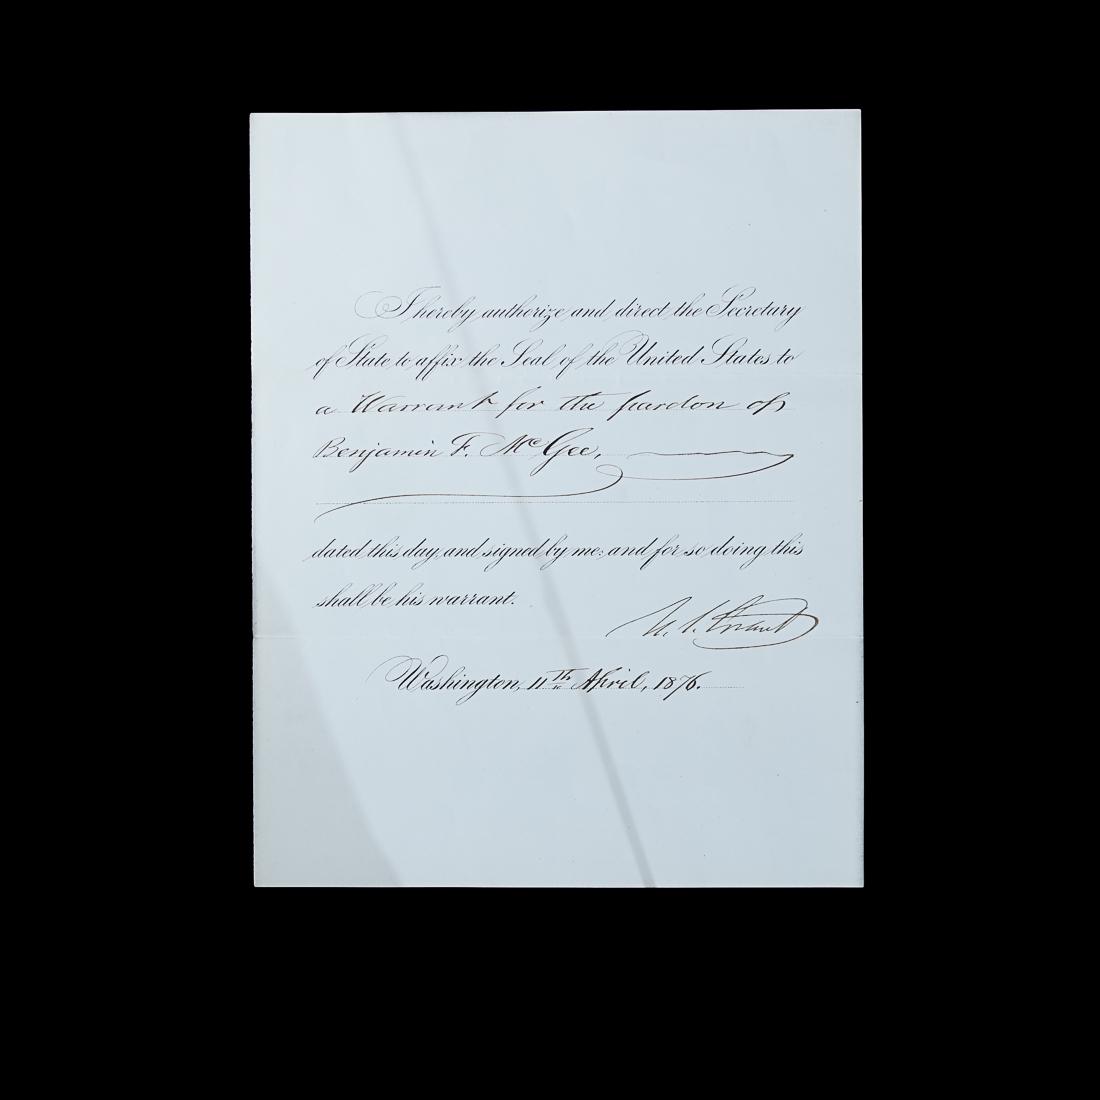 I hereby authorize and direct the Secretary
of State to affix the Seal of the United States to
a Warrant for the pardon of
Benjamin F. McGee,
dated this day, and signed by me: and for so doing this
shall be his warrant.
U. S. Grant
Washington, 11th April, 1876.